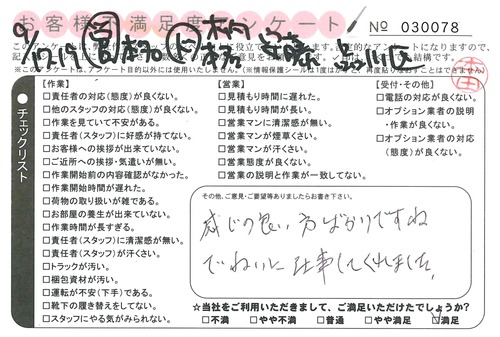 お客様の満足度アンケート
No 030078
【作業】
□責任者の対応(態度)が良くない。
□他のスタッフの対応(態度)が良くない。
□作業を見ていて不安がある。
□責任者(スタッフ)に好感が持てない。
□お客様への挨拶が出来ていない。
□ご近所への挨拶・気遣いが無い。
□作業開始前の内容確認がなかった。
□作業開始時間が遅れた。
□荷物の取り扱いが雑である。
□お部屋の養生が出来ていない。
□作業時間が長すぎる。
□責任者(スタッフ)に清潔感が無い。
□責任者(スタッフ)が汗くさい。
□トラックが汚い。
□梱包資材が汚い。
□運転が不安(下手)である。
□靴下の履き替えをしていない。
□スタッフにやる気がみられない。
【営業】
□見積もり時間に遅れた。
□見積もり時間が長い。
□営業マンに清潔感が無い。
□営業マンが煙草くさい。
□営業マンが汗くさい。
□営業態度が良くない。
□営業の説明と作業が一致してない。
【受付・その他】
□電話の対応が良くない。
□オプション業者の説明
・作業が良くない。
□オプション業者の対応
(態度)が良くない。
チェックリスト
その他、ご意見・ご要望等ありましたらお書き下さい。
感じの良い方ばかりですね
でねいに仕事してくれました。
☆当社をご利用いただきまして、ご満足いただけたでしょうか?
□不満 □やや不満 □普通 □やや満足 □満足